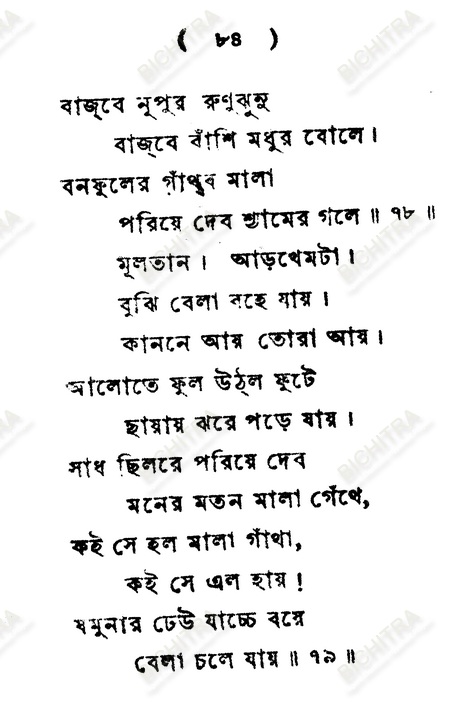 ( ৮৪ )
বাজ্‌বে নূপুর রুণুঝুনু
বাজ্‌বে বাঁশি মধুর বোলে।
বনফুলের গাঁথ্‌ব মালা
পরিয়ে দেব শ্যামের গলে॥ ৭৮॥
মূলতান। আড়খেমটা।
বুঝি বেলা বহে যায়।
কাননে আয় তোরা আয়।
আলোতে ফুল উঠ্‌ল ফুটে
ছায়ায় ঝরে পড়ে যায়।
সাধ ছিলরে পরিয়ে দেব
মনের মতন মালা গেঁথে,
কই সে হল মালা গাঁথা,
কই সে এল হায়!
যমুনার ঢেউ যাচ্চে বয়ে
বেলা চলে যায়॥ ৭৯॥
BICHITRA